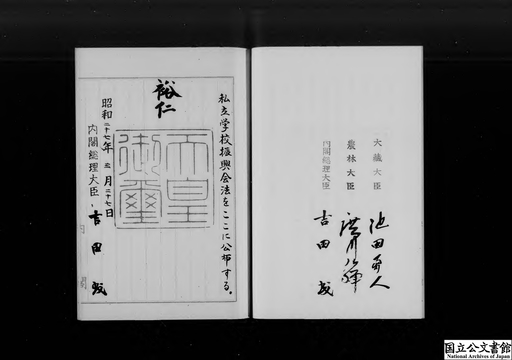 大藏大臣 池田勇人
農林大臣 廣川弘禅
内閣総理大臣 吉田茂
私立学校振興会法をここに公布する。
裕仁
天皇
御璽
昭和二十七年三月二十七日
内閣総理大臣 吉田茂
内閣
国立公文書館
National Archives of Japan